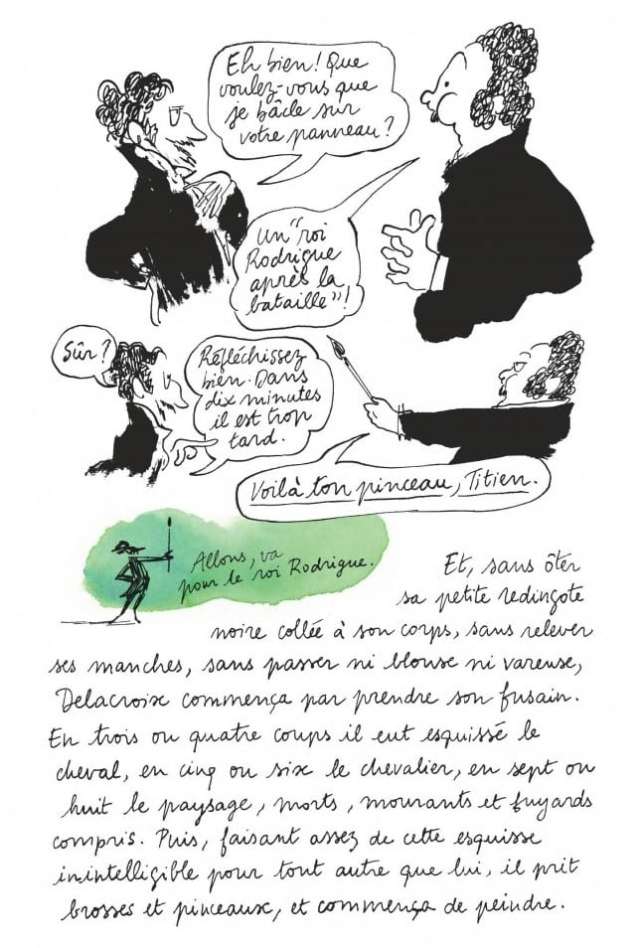 Eh bien ! Que
voulez-vous que
je bâcle sur
votre panneau ?
Un "roi
Rodrigue
après la
bataille" !
Sûr ?
Réfléchissez
bien. Dans
dix minutes
il est trop
tard.
Voilà ton pinceau, Titien.
Allons, va
pour le roi Rodrigue.
Et, sans ôter
sa petite redingote
noire collée à son corps, sans relever
ses manches, sans passer ni blouse ni vareuse,
Delacroix commença par prendre son fusain.
En trois ou quatre coups il eut esquissé le
cheval, en cinq ou six le chevalier, en sept ou
huit le paysage, morts, mourants et fuyards
compris. Puis, faisant assez de cette esquisse
inintelligible pour tout autre que lui, il prit
brosses et pinceaux, et commença de peindre.